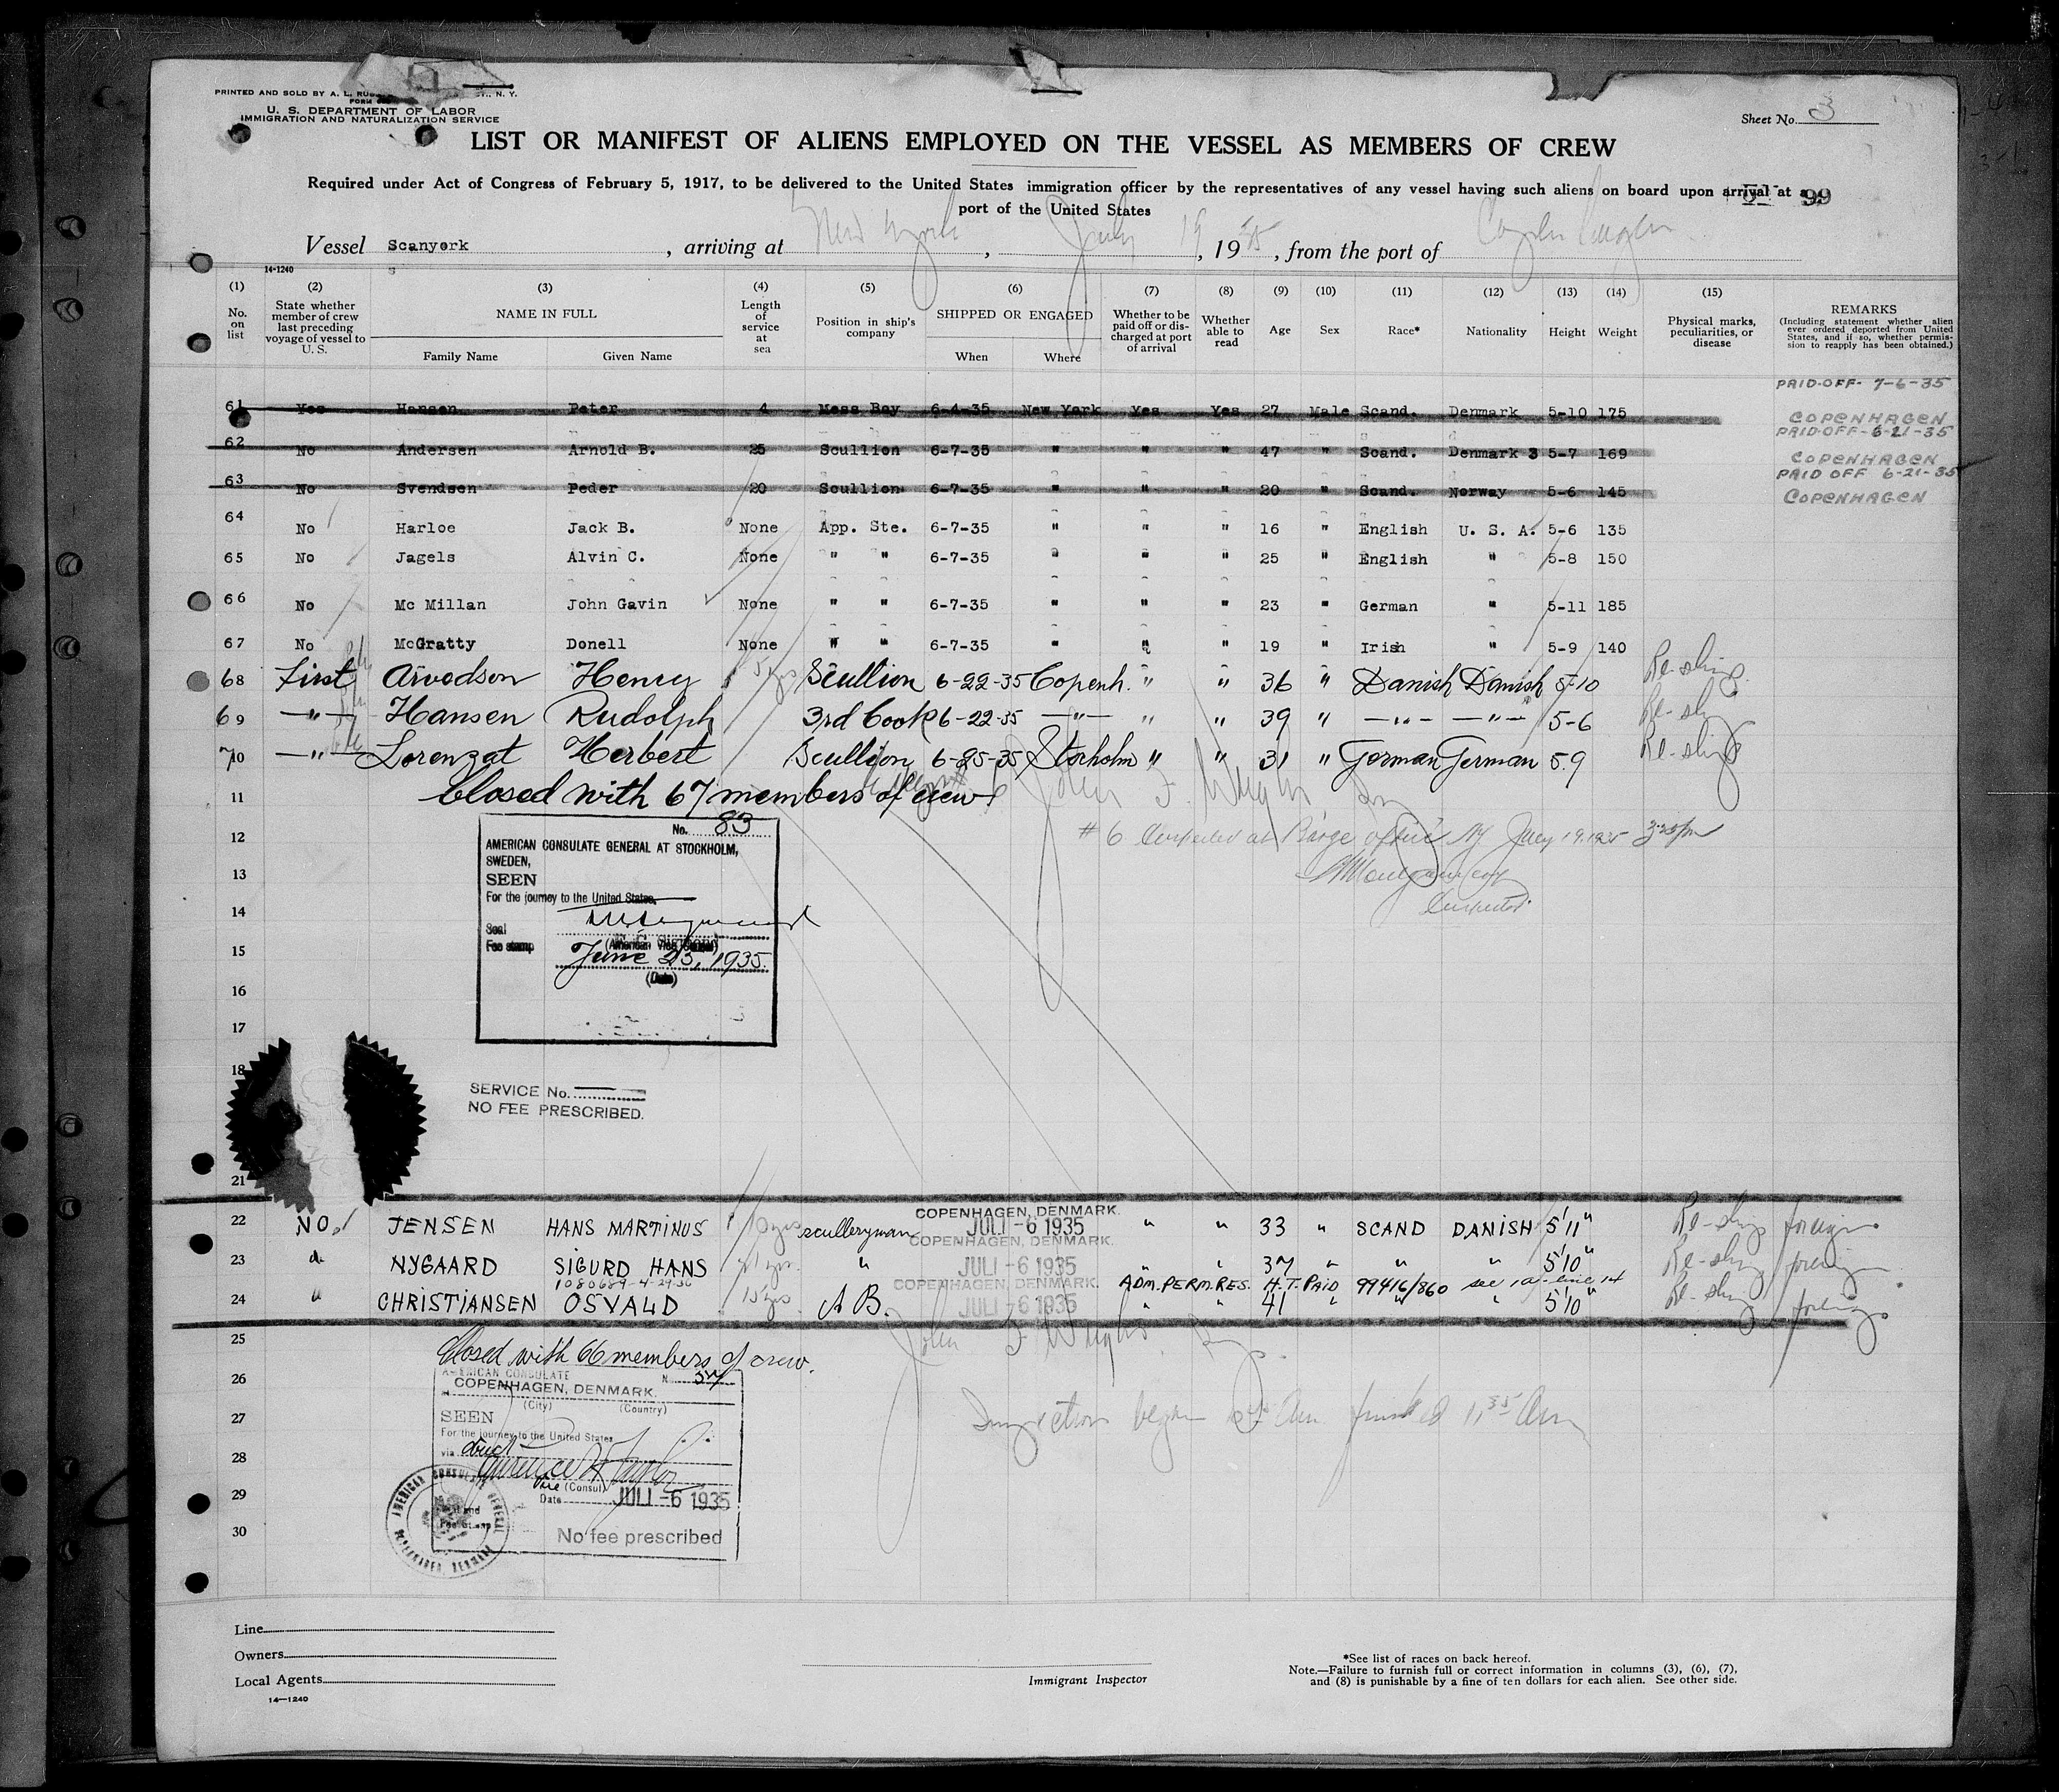 PRINTED AND SOLD BY A. L. ST., N. Y.
U. S. DEPARTMENT OF LABOR
IMMIGRATION AND NATURALIZATION SERVICE
Sheet No. 3
LIST OR MANIFEST OF ALIENS EMPLOYED ON THE VESSEL AS MEMBERS OF CREW
Required under Act of Congress of February 5, 1917, to be delivered to the United States immigration officer by the representatives of any vessel having such aliens on board upon arrival at a
port of the United States
99
Vessel Scanyork, arriving at New York, July 19, 1935, from the port of Copenhagen
14-1240
(1) (2) (3) (4) (5) (6) (7) (8) (9) (10) (11) (12) (13) (14) (15)
No. on list State whether member of crew last preceding voyage of vessel to U. S. NAME IN FULL Family Name Given Name Length of service at sea Position in ship's company SHIPPED OR ENGAGED When Where Whether to be paid off or discharged at port of arrival Whether able to read Age Sex Race* Nationality Height Weight Physical marks, peculiarities, or disease REMARKS (Including statement whether alien ever ordered deported from United States, and if so, whether permission to reapply has been obtained.)
PAID-OFF- 7-6-35
61 Yes Hansen Peter 4 Mess Boy 6-4-35 New York Yes Yes 27 Male Scand. Denmark 5-10 175 COPENHAGEN
PAID-OFF-6-21-35
62 No Andersen Arnold B. 25 Scullion 6-7-35 " " " 47 " Scand. Denmark 3 5-7 169 COPENHAGEN
PAID OFF 6-21-35
63 No Svendsen Peder 20 Scullion 6-7-35 " " " 20 " Scand. Norway 5-6 145 COPENHAGEN
64 No Harloe Jack B. None App. Ste. 6-7-35 " " " 16 " English U. S. A. 5-6 135
65 No Jagels Alvin C. None " " 6-7-35 " " " 25 " English " 5-8 150
66 No Mc Millan John Gavin None " " 6-7-35 " " " 23 " German " 5-11 185
67 No McGratty Donell None " " 6-7-35 " " " 19 " Irish " 5-9 140
68 First Arvedson Henry 5 yrs Scullion 6-22-35 Copenh. " " 36 " Danish Danish 5-10 Re-ship.
69 " Hansen Rudolph 3rd Cook 6-22-35 " " " 39 " " " 5-6 Re-ship
70 " Lorenzat Herbert Scullion 6-25-35 Storholm " " 31 " German German 5.9 Re-ship
11 Closed with 67 members of crew
12 # 6 Inspected at Barge office NY July 19 1935
13 Montgomery
14 Inspector
No. 83
AMERICAN CONSULATE GENERAL AT STOCKHOLM,
SWEDEN,
SEEN
For the journey to the United States.
Seal
(American Vice Consul)
Fee stamp
June 25, 1935.
(Date)
15
16
17
18
SERVICE No.
NO FEE PRESCRIBED.
21
22 NO. JENSEN HANS MARTINUS 10 yrs sculleryman COPENHAGEN, DENMARK. JULI -6 1935 " " 33 " SCAND DANISH 5'11" Re-ship foreign
23 NYGAARD SIGURD HANS " COPENHAGEN, DENMARK. JULI -6 1935 " " 37 " " " 5'10" Re-ship foreign
1080689-4-29-30 ADM. PERM. RES. H.T. PAID 99416/860 see
24 " CHRISTIANSEN OSVALD 15 yrs A B. COPENHAGEN, DENMARK. JULI -6 1935 " " 41 " " " 5'10" Re-ship foreign
25 Closed with 66 members of crew.
26
AMERICAN CONSULATE
N 37
COPENHAGEN, DENMARK.
(City) (Country)
27 Inspection began finished 11 35 Am
SEEN
For the journey to the United States
via direct
28
Vice (Consul)
29
Date JULI -6 1935
30
No fee prescribed
AMERICAN CONSULATE GENERAL COPENHAGEN DENMARK
Line
Owners
Local Agents
14—1240
Immigrant Inspector
*See list of races on back hereof.
Note.—Failure to furnish full or correct information in columns (3), (6), (7),
and (8) is punishable by a fine of ten dollars for each alien. See other side.